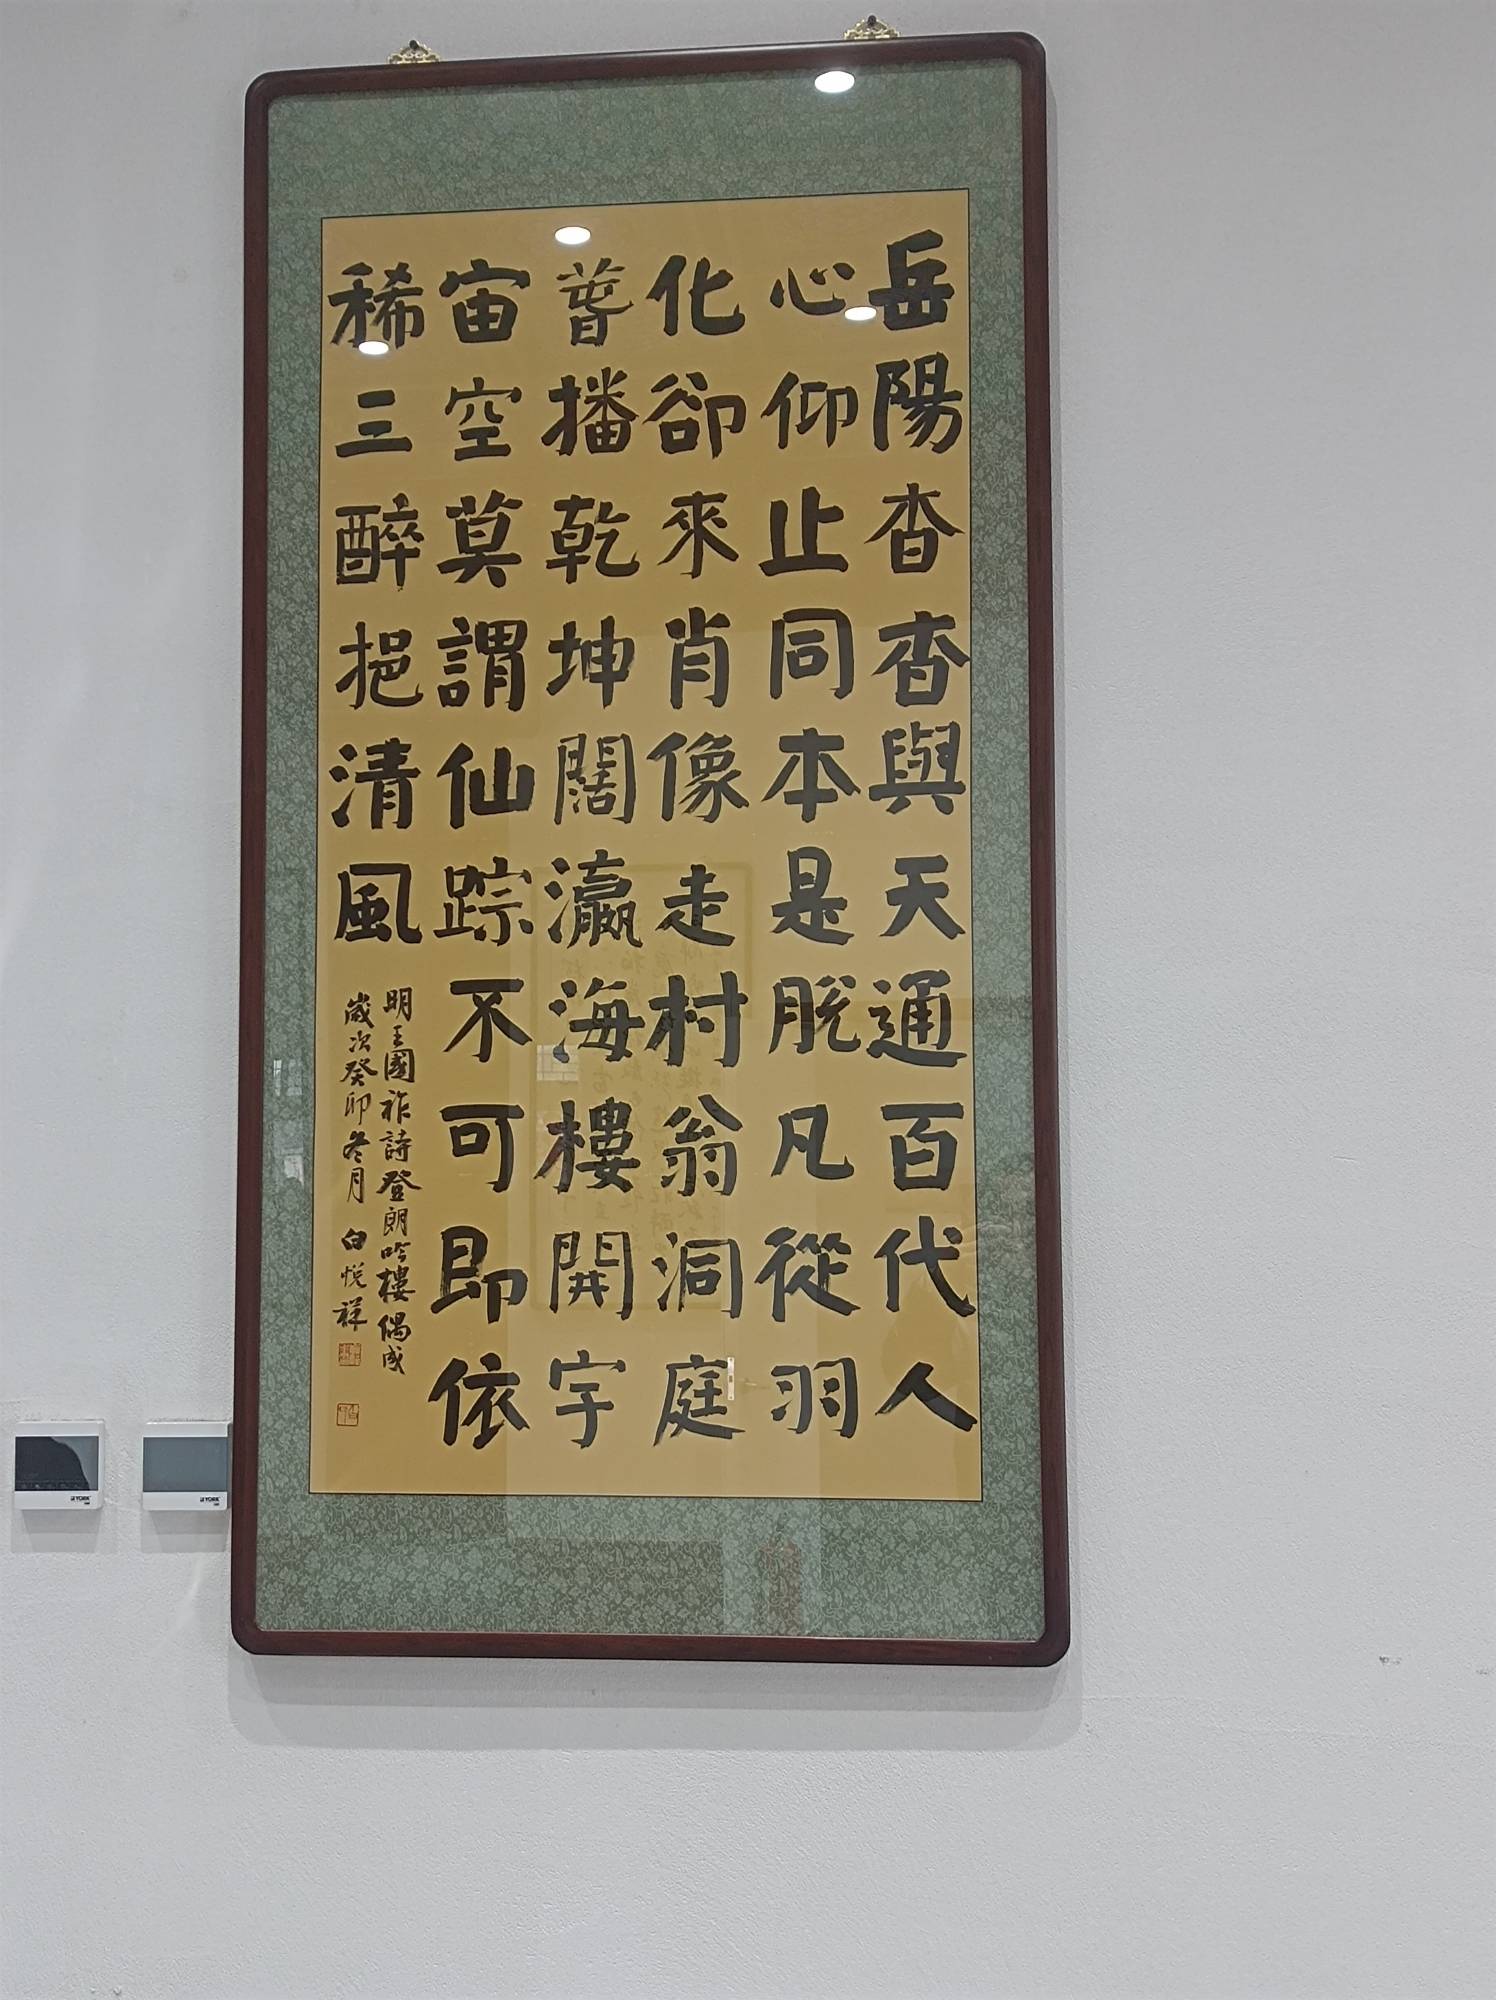 岳陽杳杳與天通百代人
心仰止同本是脱凡從羽
化卻来肖像走村翁洞庭
普播乾坤闊瀛海樓開宇
宙空莫謂仙踪不可即依
稀三醉挹清風
明王國祚詩登朗吟樓偶成
歲次癸卯冬月 白悦祥
YORK
YORK